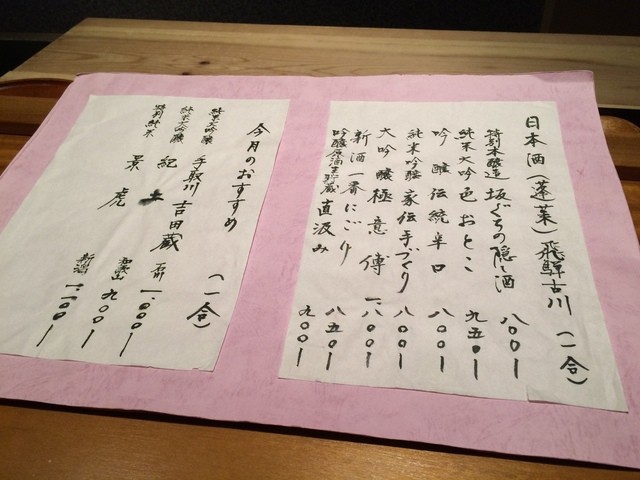 日本酒(蓬莱)飛騨古川(一合)
特別本醸造 坂ぐちの隠し酒 八〇〇ー
純米大吟 色おとこ 九五〇ー
吟醸伝統辛口 八〇〇ー
純米吟醸 家伝手づくり 八〇〇ー
大吟醸極意傳 一、八〇〇ー
新酒一番にごり 八五〇ー
吟醸原酒生貯蔵 直汲み 九〇〇ー
今月のおすすめ (一合)
純米大吟醸 手取川 吉田蔵 石川 一、〇〇〇ー
純米大吟醸 紀土 和歌山 九〇〇ー
特別純米 景虎 新潟 一、一〇〇ー